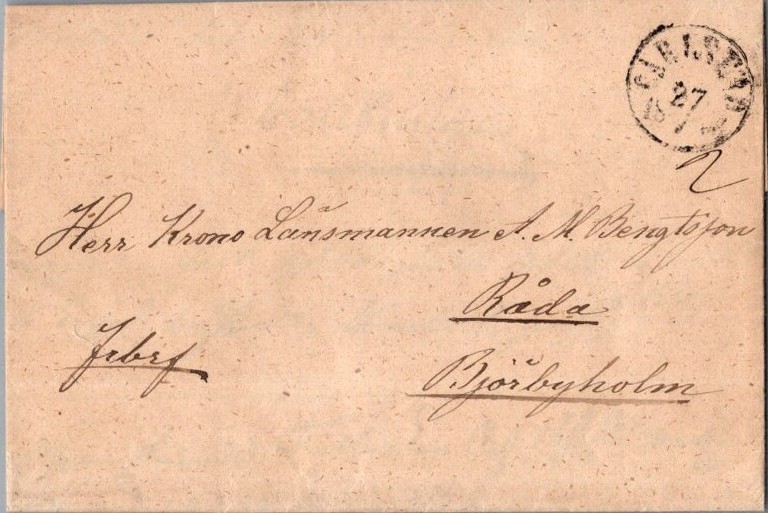 CARLSTAD
27
2
Herr Krono Länsmannen A. M. Bengtsson
Råda
Frbrf
Björbyholm